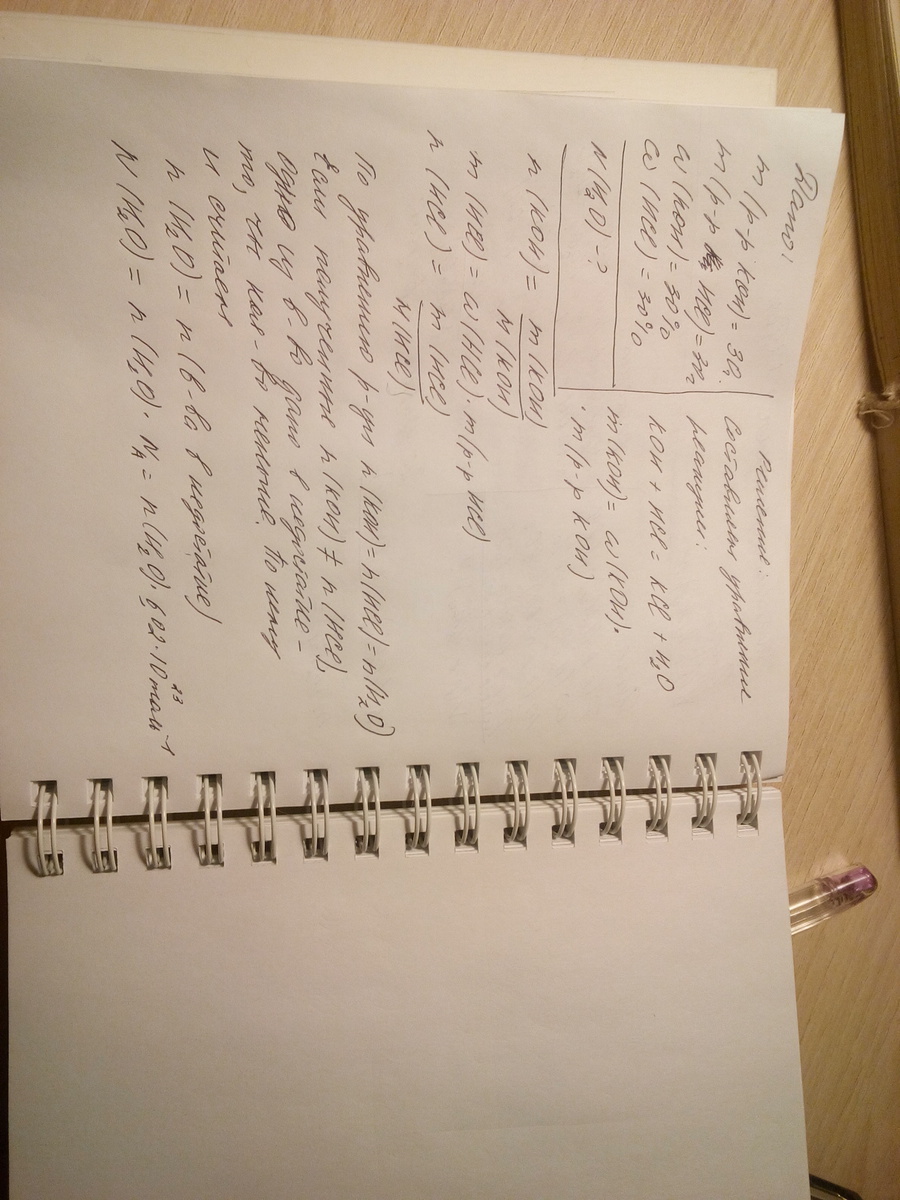 Дано:
m(р-р KOH) = 30г
m(р-р HCl) = 3г
ω(KOH) = 30%
ω(HCl) = 30%
N(H₂O) - ?
Решение:
Составляем уравнение
реакции:
KOH + HCl = KCl + H₂O
m(KOH) = ω(KOH)·
·m(р-р KOH)
n(KOH) = m(KOH)
M(KOH)
m(HCl) = ω(HCl)·m(р-р HCl)
n(HCl) = m(HCl)
M(HCl)
По уравнению р-ции n(KOH) = n(HCl) = n(H₂O)
Если полученные n(KOH) ≠ n(HCl),
одно из в-в дано в недостатке -
то, чьё кол-во меньше. По нему
и считаем
n(H₂O) = n(в-ва в недостатке)
N(H₂O) = n(H₂O)·Nₐ = n(H₂O)·6,02·10²³моль⁻¹